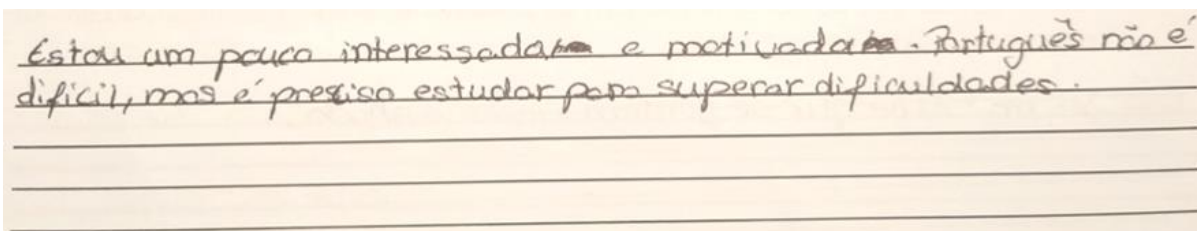 Estou um pouco interessada e motivada. Português não é
dificil, mas é preciso estudar para superar dificuldades.